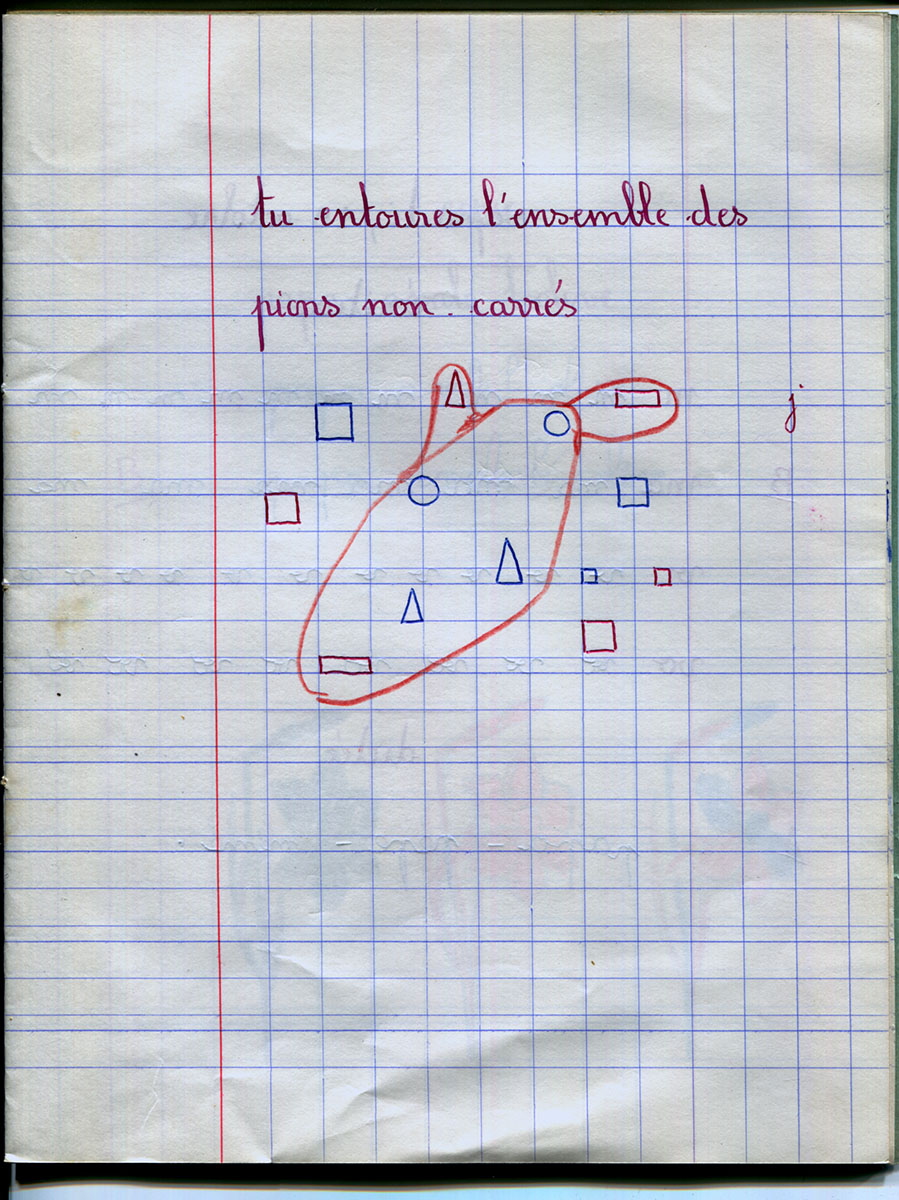 tu entoures l'ensemble des
pions non.carrés
j